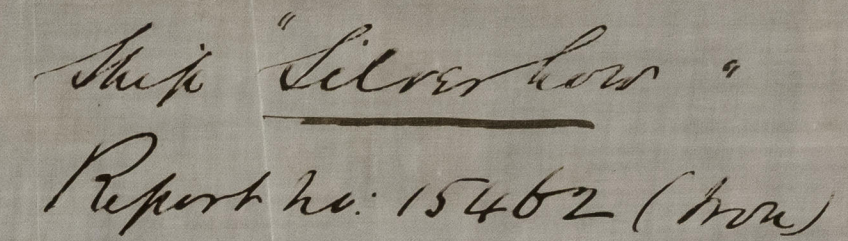 Ship "Silverhow"
Report no: 15462 (Iron)